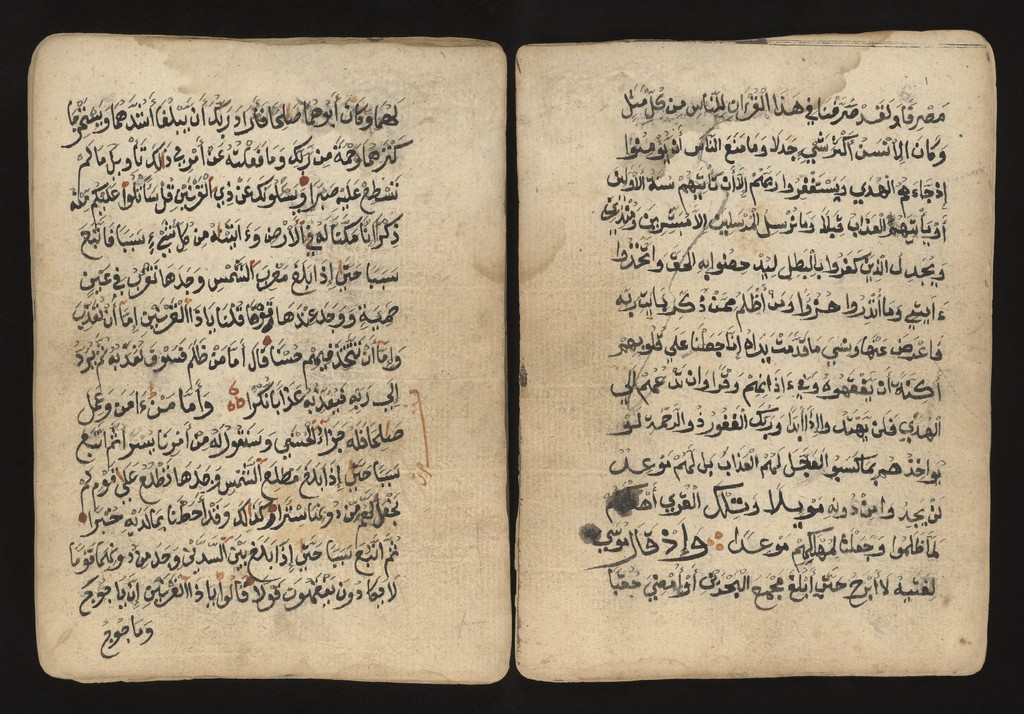 مصرفا ولقد صرفنا في هذا القرءان للناس من كل مثل
وكان الإنسن أكثر شيء جدلا وما منع الناس أن يومنوا
إذ جاءهم الهدي ويستغفروا ربهم إلا أن تأتيهم سنة الأولين
أو يأتيهم العذاب قبلا وما نرسل المرسلين إلا مبشرين ومنذرين
ويجدل الذين كفروا بالبطل ليدحضوا به الحق واتخذوا
ءايتي وما أنذروا هزوا ومن أظلم ممن ذكر بايت ربه
فاعرض عنها ونسي ما قدمت يداه إنا جعلنا علي قلوبهم
أكنة أن يفقهوه وفي ءاذانهم وقرا وإن تدعهم إلي
الهدي فلن يهتدوا إذا أبدا وربك الغفور ذو الرحمة لو
يواخذهم بما كسبوا لعجل لهم العذاب بل لهم موعد
لن يجدوا من دونه مويلا وتلك القري أهلكنهم
لما ظلموا وجعلنا لمهلكهم موعدا وإذ قال موسي
لفتيه لا أبرح حتي أبلغ مجمع البحرين أو أمضي حقبا
لهما وكان أبوهما صلحا فأراد ربك أن يبلغا أشدهما ويستخرجا
كنزهما رحمة من ربك وما فعلته عن أمري ذلك تأويل ما لم
تسطع عليه صبرا ويسئلونك عن ذي القرنين قل سأتلوا عليكم منه
ذكرا إنا مكنا له في الأرض وءاتينه من كل شيء سببا فاتبع
سببا حتي إذا بلغ مغرب الشمس وجدها تغرب في عين
حمية ووجد عندها قوما قلنا ياذا القرنين إما أن تعذب
وإما أن تتخذ فيهم حسنا قال أما من ظلم فسوف نعذبه ثم يرد
إلي ربه فيعذبه عذابا نكرا وأما من ءامن وعمل
صلحا فله جزاء الحسني وسنقول له من أمرنا يسرا ثم اتبع
سببا حتي إذا بلغ مطلع الشمس وجدها تطلع علي قوم لم
نجعل لهم من دونها سترا كذلك وقد أحطنا بما لديه خبرا
ثم اتبع سببا حتي إذا بلغ بين السدين وجد من دونهما قوما
لا يكادون يفقهون قولا قالوا ياذا القرنين إن ياجوج
وماجوج